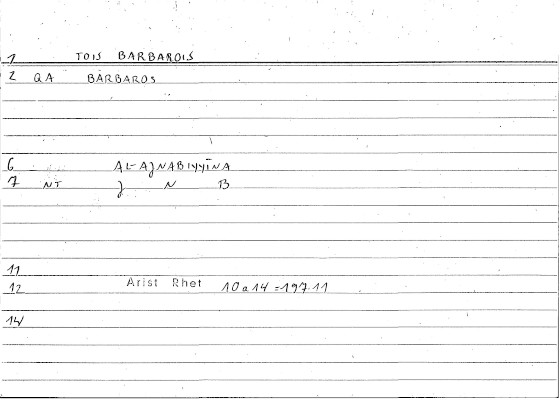 1 TOIS BARBAROIS
2 QA BÀRBAROS
6 AL-AJNABIYYĪNA
7 NT J N B
11
12 Arist Rhet 10a14=197.11
14